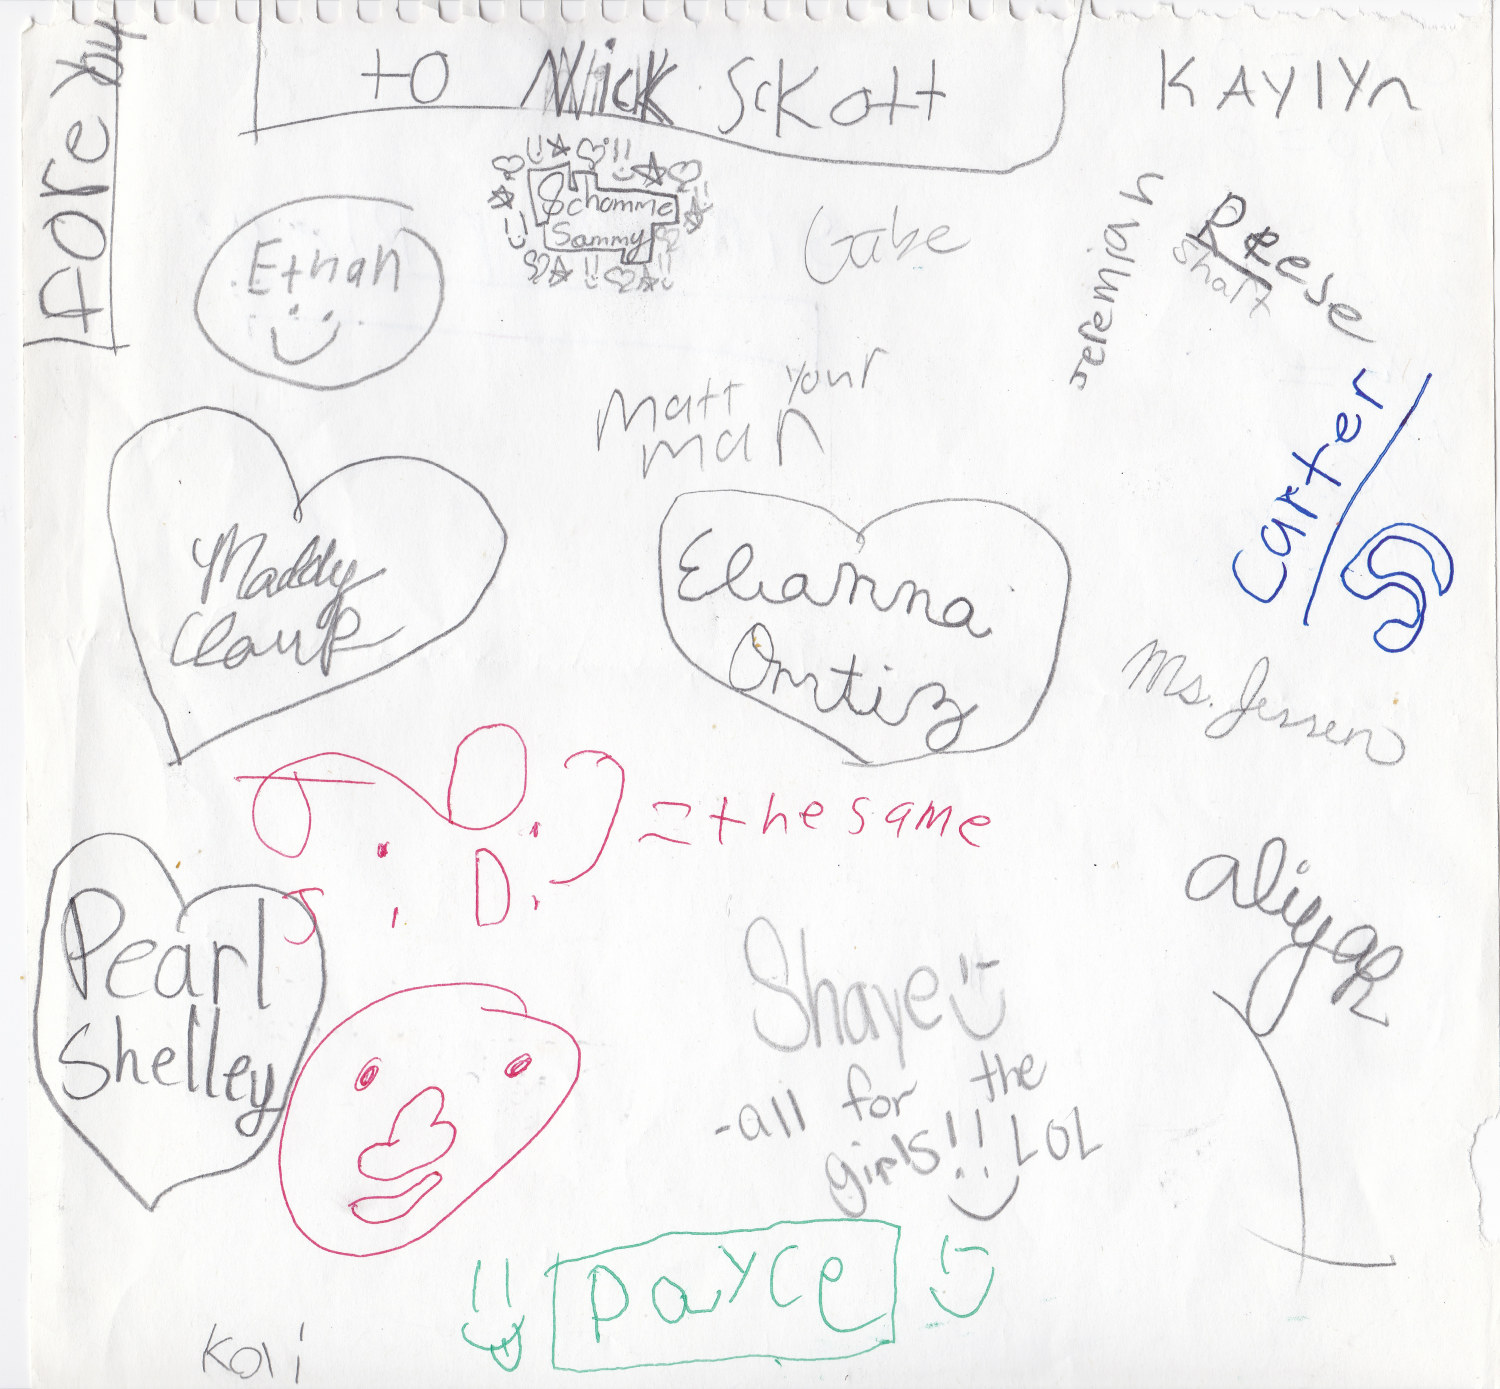 fore you
to Nick Sckott
KAYlYn
Schomme
Sammy
Ethan
Gabe
Jeremiah
Reese
Matt your
man
Carter
Maddy
Clark
Elianna
Ortiz
Ms. Jessen
J. D.
= the same
J. D.
Pearl
Shelley
aliyah
Shaye
-all for the
girls!! LOL
payce
Kari